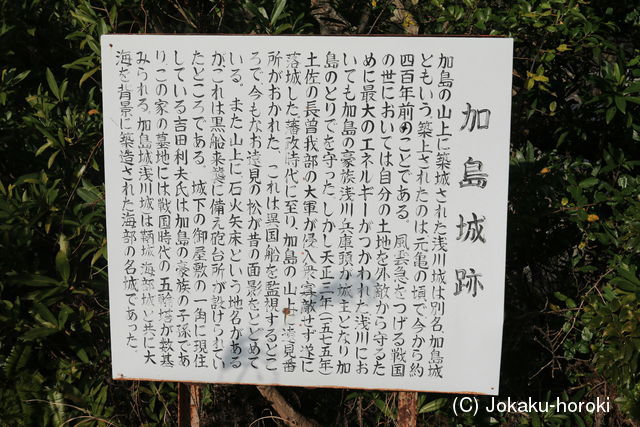 加島城跡
加島の山上に築城された浅川城は別名加島城
ともいう。築上されたのは元亀の頃で今から約
四百年前のことである。風雲急をつげる戦国
の世においては自分の土地を外敵から守るた
めに最大のエネルギーがつかわれた浅川にお
いても加島の豪族浅川兵庫頭が城主となり加
島のとりでを守った。しかし天正三年(一五七五年)
土佐の長曽我部の大軍が侵入衆寡敵せず遂に
落城した藩政時代に至り、加島の山上に遠見番
所がおかれた。これは異国船を監視するとこ
ろで、今もなお遠見の松が昔の面影をとどめて
いる。また山上に石火矢床という地名がある
がこれは黒船来遠に備え砲台所が設けられてい
たところである。城下の御屋敷の一角に現住
している吉田利夫氏は加島の豪族の子孫であ
りこの家の墓地には戦国時代の五輪塔が数基
みられる。加島城浅川城は鞆城、海部城と共に大
海を背景に築造された海部の名城であった。
(C) Jokaku-horoki